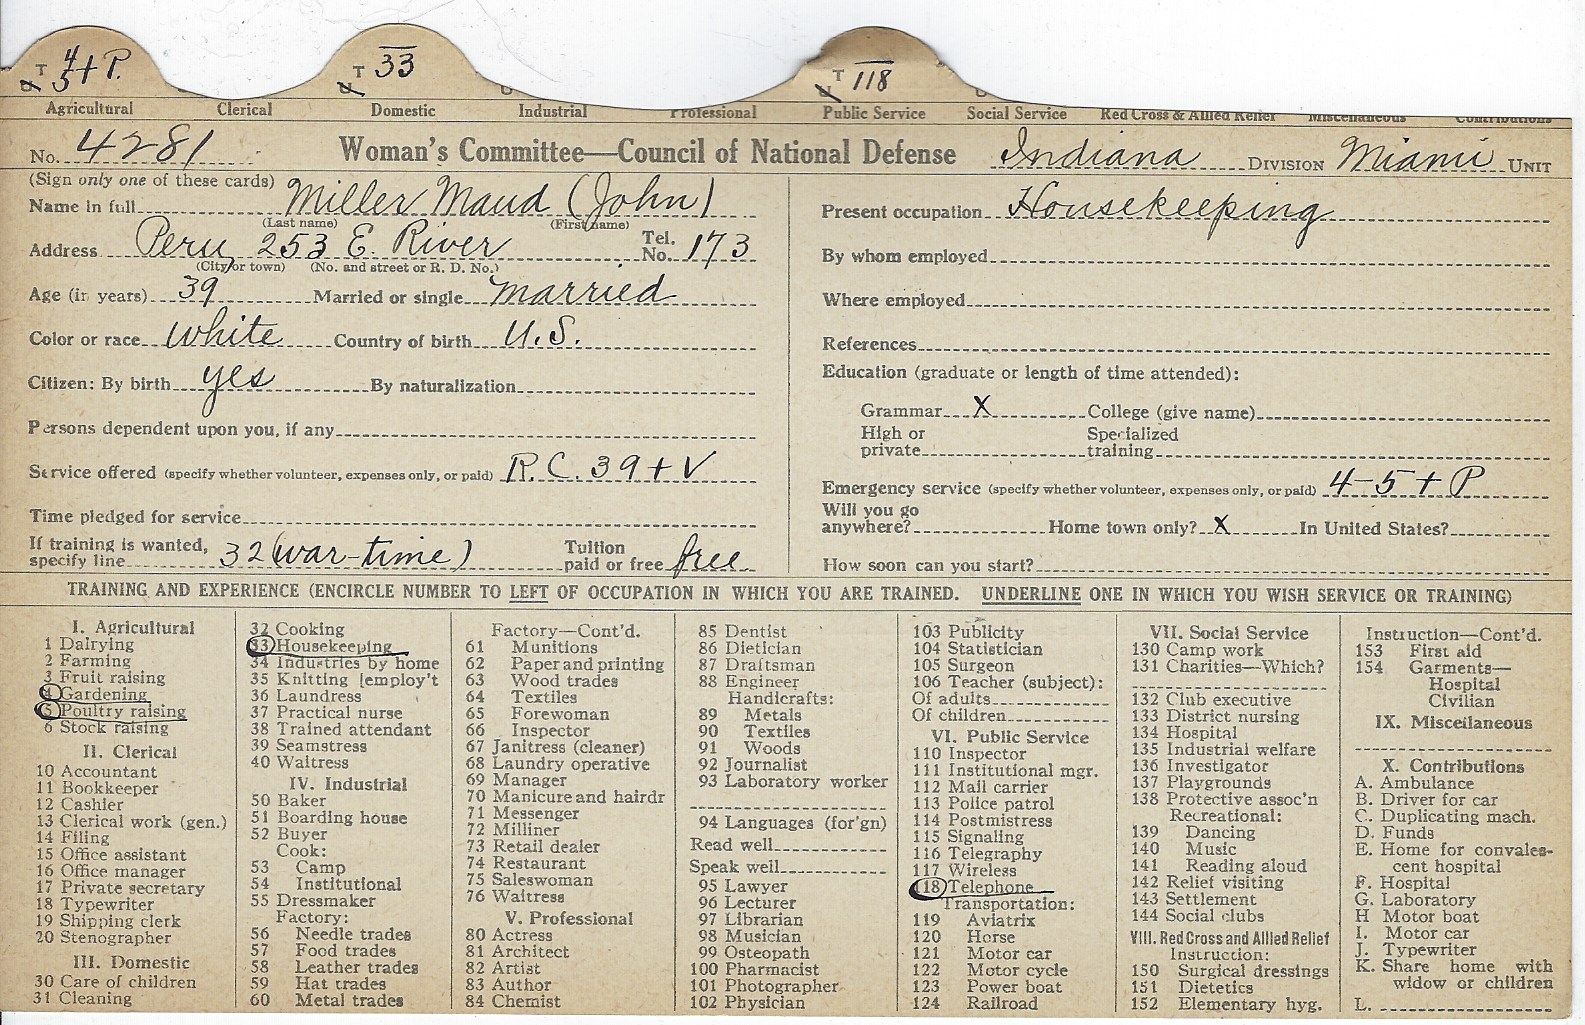 T 4 5 + P.
T 33
T 118
Agricultural Clerical Domestic Industrial Professional Public Service Social Service Red Cross & Allied Relief Miscellaneous Contributions
No. 4281 Woman's Committee—Council of National Defense Indiana DIVISION Miami UNIT
(Sign only one of these cards)
Name in full Miller Maud (John)
(Last name) (First name)
Address Peru, 253 E. River Tel. No. 173
(City or town) (No. and street or R. D. No.)
Age (in years) 39 Married or single married
Color or race white Country of birth U.S.
Citizen: By birth yes By naturalization
Persons dependent upon you, if any
Service offered (specify whether volunteer, expenses only, or paid) R.C. 39 + V
Time pledged for service
If training is wanted, specify line 32 (war-time) Tuition paid or free free
Present occupation Housekeeping
By whom employed
Where employed
References
Education (graduate or length of time attended):
Grammar X College (give name)
High or private Specialized training
Emergency service (specify whether volunteer, expenses only, or paid) 4-5 + P
Will you go anywhere? Home town only? X In United States?
How soon can you start?
TRAINING AND EXPERIENCE (ENCIRCLE NUMBER TO LEFT OF OCCUPATION IN WHICH YOU ARE TRAINED. UNDERLINE ONE IN WHICH YOU WISH SERVICE OR TRAINING)
I. Agricultural
1 Dairying
2 Farming
3 Fruit raising
4 Gardening
5 Poultry raising
6 Stock raising
II. Clerical
10 Accountant
11 Bookkeeper
12 Cashier
13 Clerical work (gen.)
14 Filing
15 Office assistant
16 Office manager
17 Private secretary
18 Typewriter
19 Shipping clerk
20 Stenographer
III. Domestic
30 Care of children
31 Cleaning
32 Cooking
33 Housekeeping
34 Industries by home
35 Knitting [employ't
36 Laundress
37 Practical nurse
38 Trained attendant
39 Seamstress
40 Waitress
IV. Industrial
50 Baker
51 Boarding house
52 Buyer
Cook:
53 Camp
54 Institutional
55 Dressmaker
Factory:
56 Needle trades
57 Food trades
58 Leather trades
59 Hat trades
60 Metal trades
Factory—Cont'd.
61 Munitions
62 Paper and printing
63 Wood trades
64 Textiles
65 Forewoman
66 Inspector
67 Janitress (cleaner)
68 Laundry operative
69 Manager
70 Manicure and hairdr
71 Messenger
72 Milliner
73 Retail dealer
74 Restaurant
75 Saleswoman
76 Waitress
V. Professional
80 Actress
81 Architect
82 Artist
83 Author
84 Chemist
85 Dentist
86 Dietician
87 Draftsman
88 Engineer
Handicrafts:
89 Metals
90 Textiles
91 Woods
92 Journalist
93 Laboratory worker
94 Languages (for'gn)
Read well
Speak well
95 Lawyer
96 Lecturer
97 Librarian
98 Musician
99 Osteopath
100 Pharmacist
101 Photographer
102 Physician
103 Publicity
104 Statistician
105 Surgeon
106 Teacher (subject):
Of adults
Of children
VI. Public Service
110 Inspector
111 Institutional mgr.
112 Mail carrier
113 Police patrol
114 Postmistress
115 Signaling
116 Telegraphy
117 Wireless
118 Telephone
Transportation:
119 Aviatrix
120 Horse
121 Motor car
122 Motor cycle
123 Power boat
124 Railroad
VII. Social Service
130 Camp work
131 Charities—Which?
132 Club executive
133 District nursing
134 Hospital
135 Industrial welfare
136 Investigator
137 Playgrounds
138 Protective assoc'n
Recreational:
139 Dancing
140 Music
141 Reading aloud
142 Relief visiting
143 Settlement
144 Social clubs
VIII. Red Cross and Allied Relief
Instruction:
150 Surgical dressings
151 Dietetics
152 Elementary hyg.
Instruction—Cont'd.
153 First aid
154 Garments—
Hospital
Civilian
IX. Miscellaneous
X. Contributions
A. Ambulance
B. Driver for car
C. Duplicating mach.
D. Funds
E. Home for convales-
cent hospital
F. Hospital
G. Laboratory
H Motor boat
I. Motor car
J. Typewriter
K. Share home with
widow or children
L.